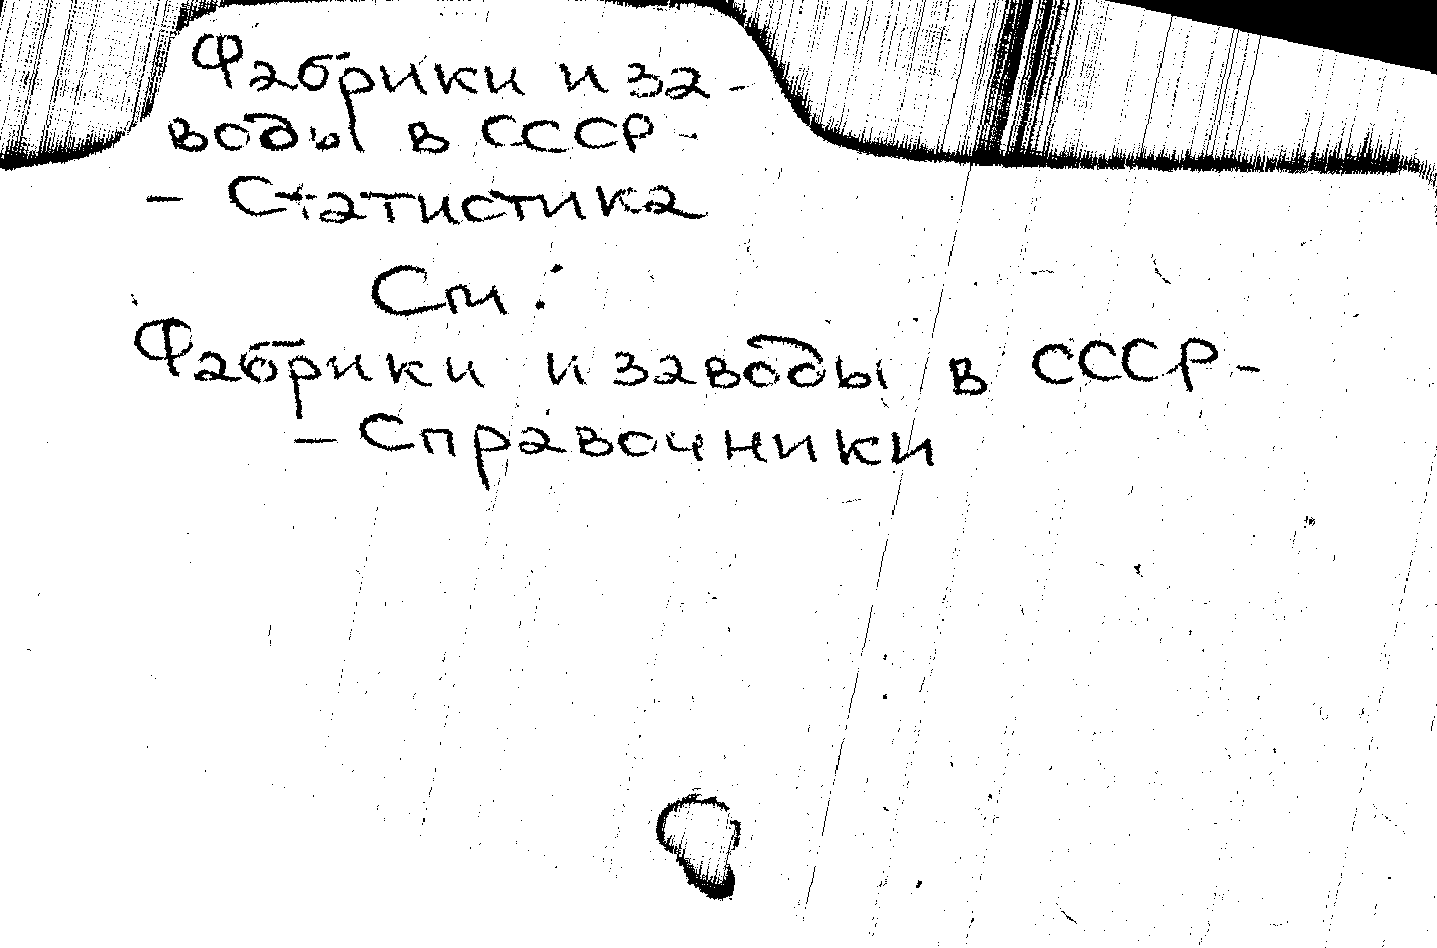 Фабрики и за-
воды в СССР -
- Статистика
См:
Фабрики и заводы в СССР -
- Справочники